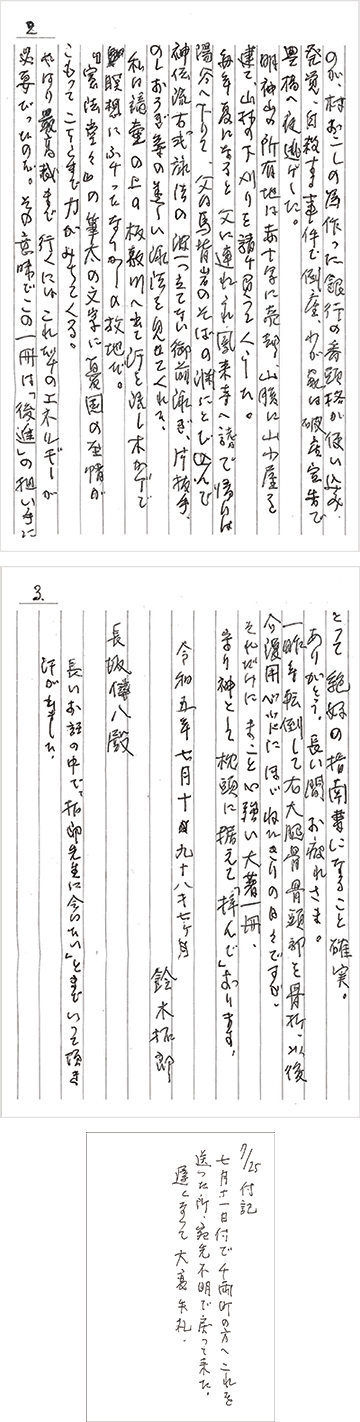 2
のが、村おこしの為作った銀行の番頭格が使い込み
発覚、自殺する事件で倒産、わが家は破産宣告で
豊橋へ夜逃げした。
明神山の所有地は赤十字に売却、山腹に山小屋を
建て、山林の下刈りを請け負ってくらした。
毎年夏になると父に連れられ鳳来寺へ詣で帰りは
陽谷へ下りて、父は馬背岩のそばの淵にとび込んで
神伝流古式泳法の波一つ立てない御前泳ぎ、片抜手、
のしおよぎ等の美しい泳法を見せてくれる。
私は猿壺の上の板敷川へ出て汗を流し木かげで
瞑想にふけったなつかしの故地だ。
『憲法堂々』の筆太の文字に憂国の至情が
こもってこちらまで力がみちてくる。
やはり最高裁まで行くにはこれだけのエネルギーが
必要だったのだ。その意味でこの一冊は「後進」の担い手に
3.
とって絶好の指南書になること確実。
ありがとう。長い間お疲れさま。
一昨年転倒して右大腿骨骨頭部を骨折、以後
介護用ベッドにほぼねたきりの日々ですが、
それだけにまこと心強い大著一冊、
守り神として枕頭に据えて「拝んで」おります。
令和五年七月十日 九十八才七ヶ月
鈴木拓郎
長坂傳八殿
長いお話の中で、「拓郎先生に会いたい」とまでいって頂き
汗が出ました。
7/25 付記
七月十一日付で千両町の方へこれを
送った所、宛先不明で戻って来た。
遅くなって大変失礼。